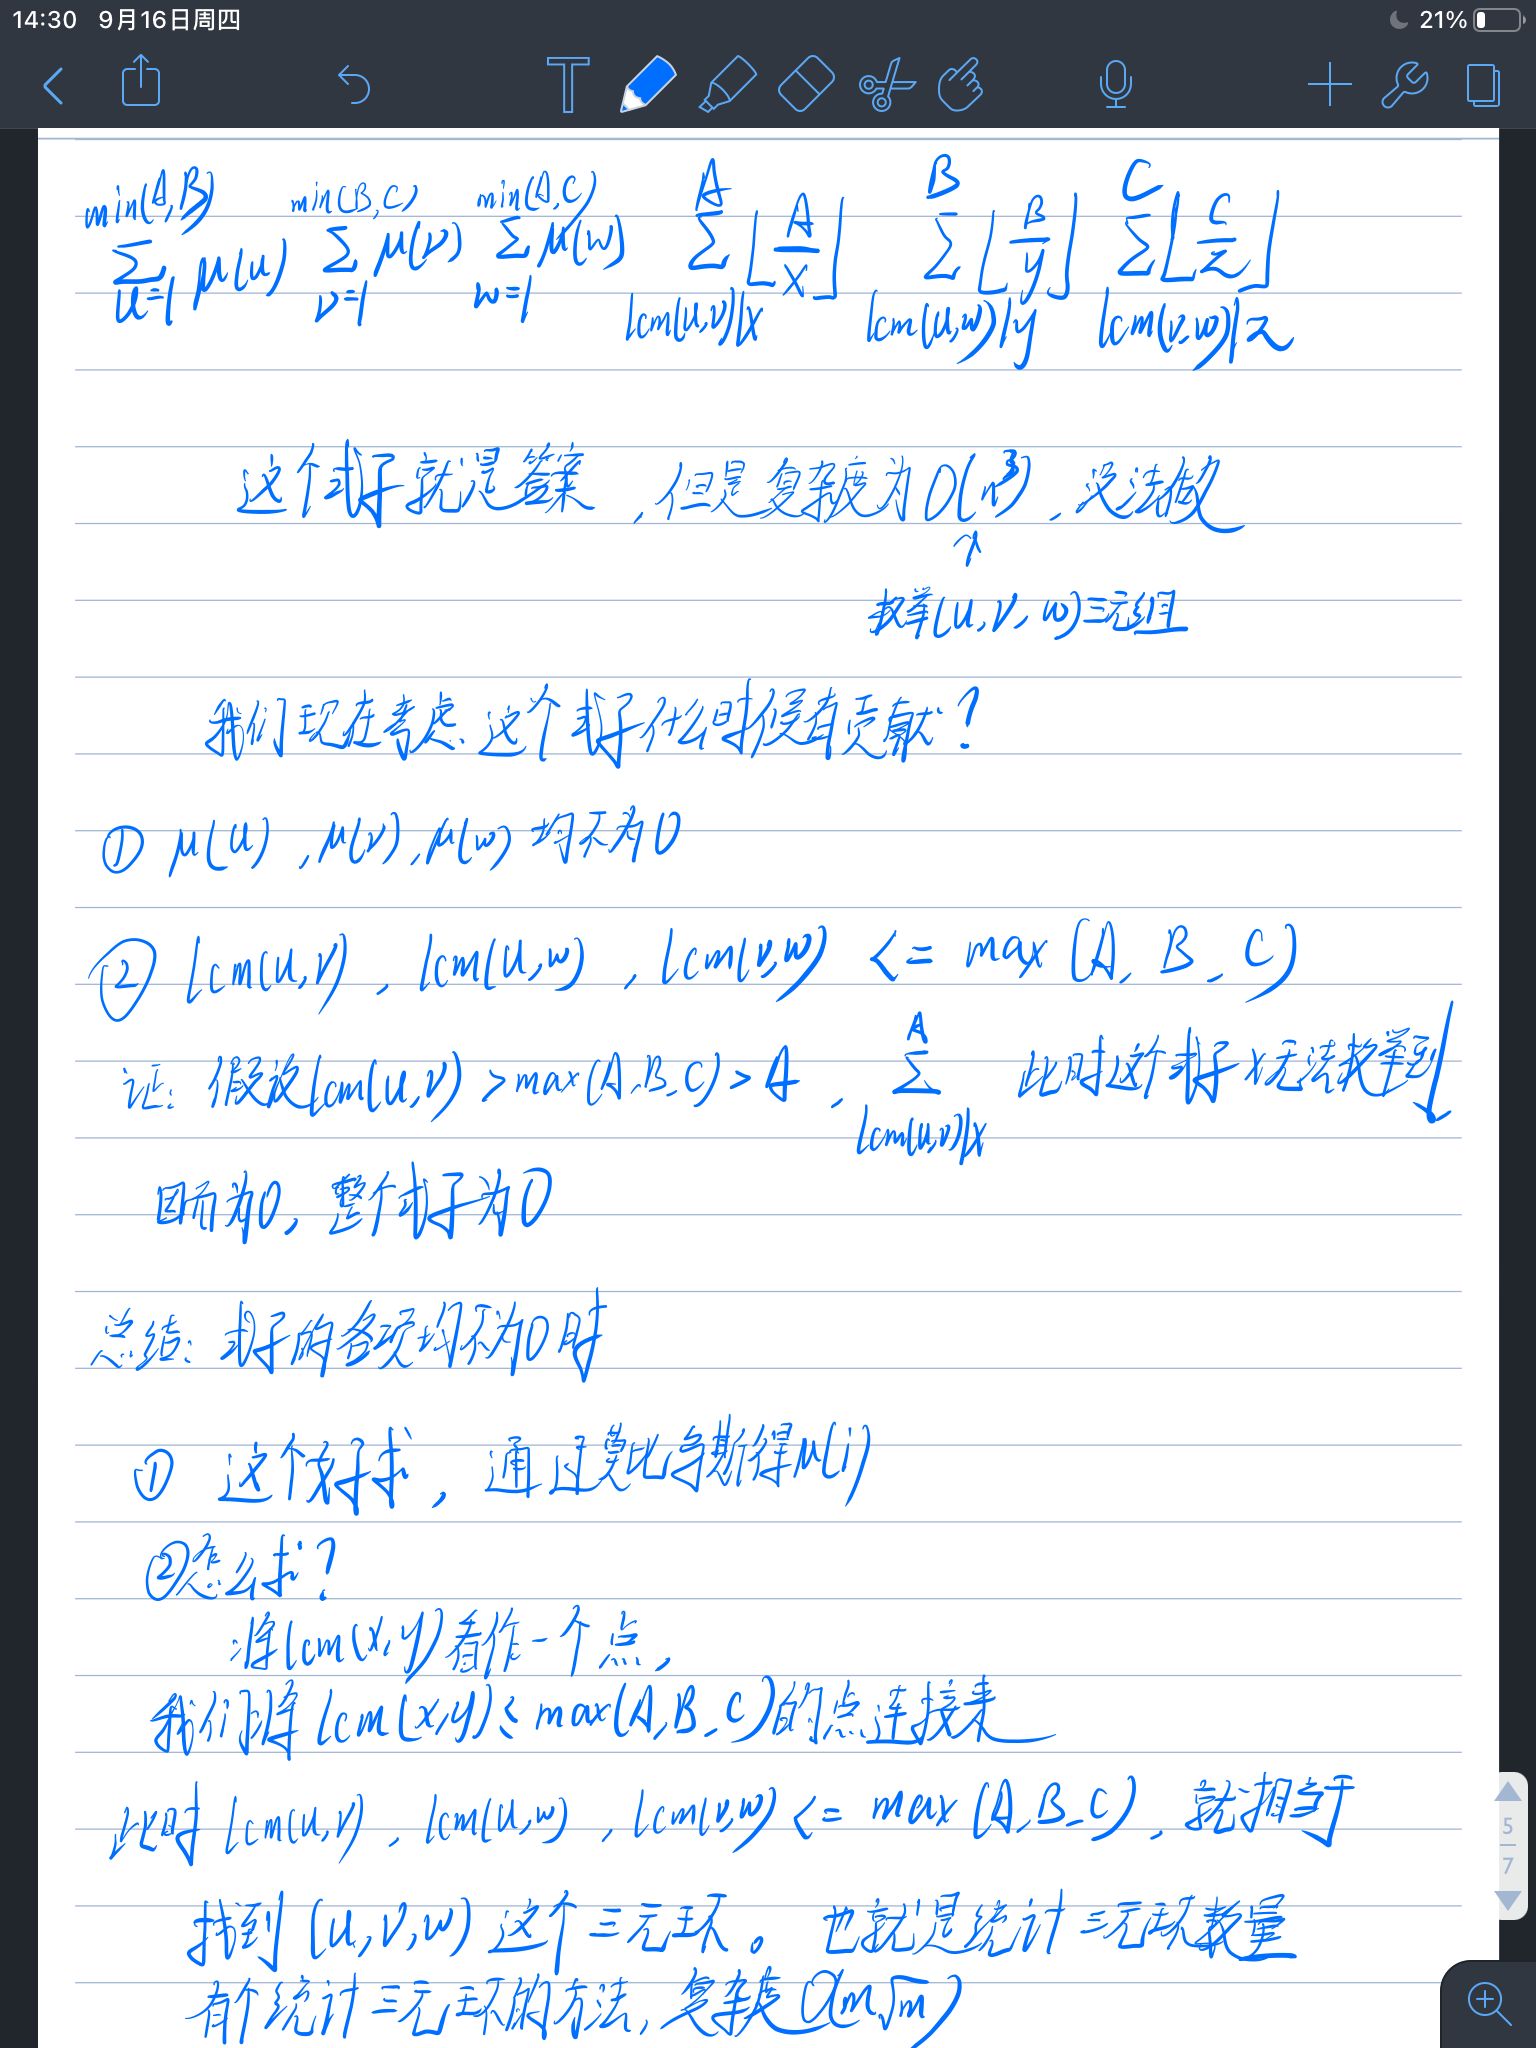 14:30 9月16日周四 21%
min(A,B) min(B,C) min(A,C) A B C
∑ μ(u) ∑ μ(v) ∑ μ(w) ∑ ⌊A/x⌋ ∑ ⌊B/y⌋ ∑ ⌊C/z⌋
u=1 v=1 w=1 lcm(u,v)|x lcm(u,w)|y lcm(v,w)|z
这个式子就是答案,但是复杂度为O(n³),没法做
↑
枚举(u,v,w)三元组
我们现在考虑,这个式子什么时候有贡献?
① μ(u),μ(v),μ(w)均不为0
② lcm(u,v), lcm(u,w), lcm(v,w) <= max(A,B,C)
证: 假设lcm(u,v)>max(A,B,C)>A, A∑lcm(u,v)|x 此时这个式子x无法枚举到↓
因而为0,整个式子为0
总结: 式子的各项均不为0时
① 这个好求,通过莫比乌斯得μ(i)
②怎么求?
将lcm(x,y)看作一个点,
我们将lcm(x,y)≤max(A,B,C)的点连接来
此时lcm(u,v),lcm(u,w),lcm(v,w)<=max(A,B,C),就相当于
找到(u,v,w)这个三元环。也就是统计三元环数量
有个统计三元环的方法,复杂度O(m√m)
5
7